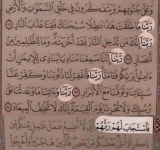 جنوبهم ويتفكرون في خلق السموات والأرض
ربنا ما خلقت هذا بطلا سبحنك فقنا عذاب النار
ربنا إنك من تدخل النار فقد أخزيته وما للظلمين من
أنصار ربنا إننا سمعنا مناديا ينادي للإيمن أن
ءامنوا بربكم فـامنا ربنا فاغفر لنا ذنوبنا وكفر عنا
سيـاتنا وتوفنا مع الأبرار ربنا وءاتنا ما وعدتنا على
رسلك ولا تخزنا يوم القيمة إنك لا تخلف الميعاد
فاستجاب لهم ربهم أني لا أضيع عمل عمل منكم